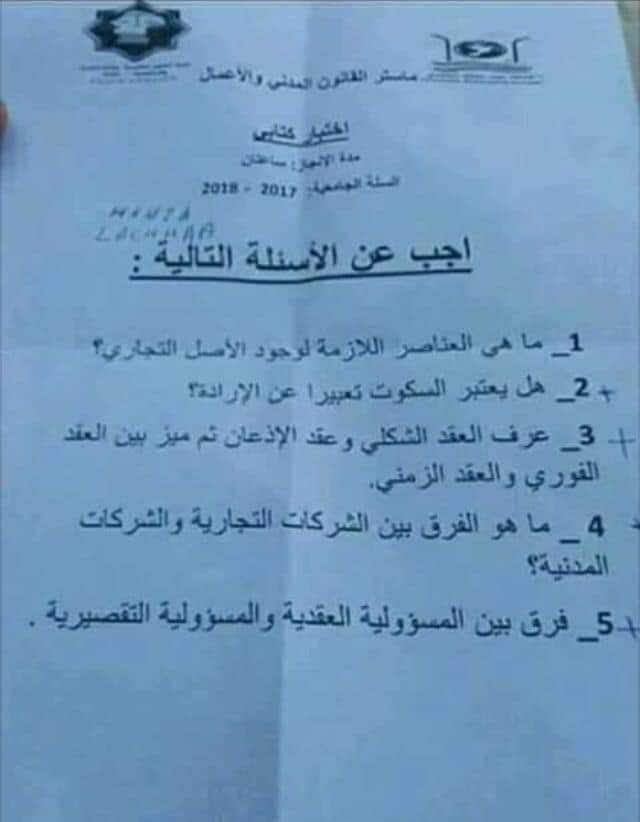 ماستر القانون المدني والأعمال
اختبار كتابي
مدة الإنجاز: ساعتان
السنة الجامعية: 2017 - 2018
HAMZA
اجب عن الأسئلة التالية :
1_ ما هي العناصر اللازمة لوجود الأصل التجاري؟
+ 2_ هل يعتبر السكوت تعبيرا عن الإرادة؟
+ 3_ عرف العقد الشكلي وعقد الإذعان ثم ميز بين العقد
الفوري والعقد الزمني.
+ 4 _ ما هو الفرق بين الشركات التجارية والشركات
المدنية؟
+ 5_ فرق بين المسؤولية العقدية والمسؤولية التقصيرية .